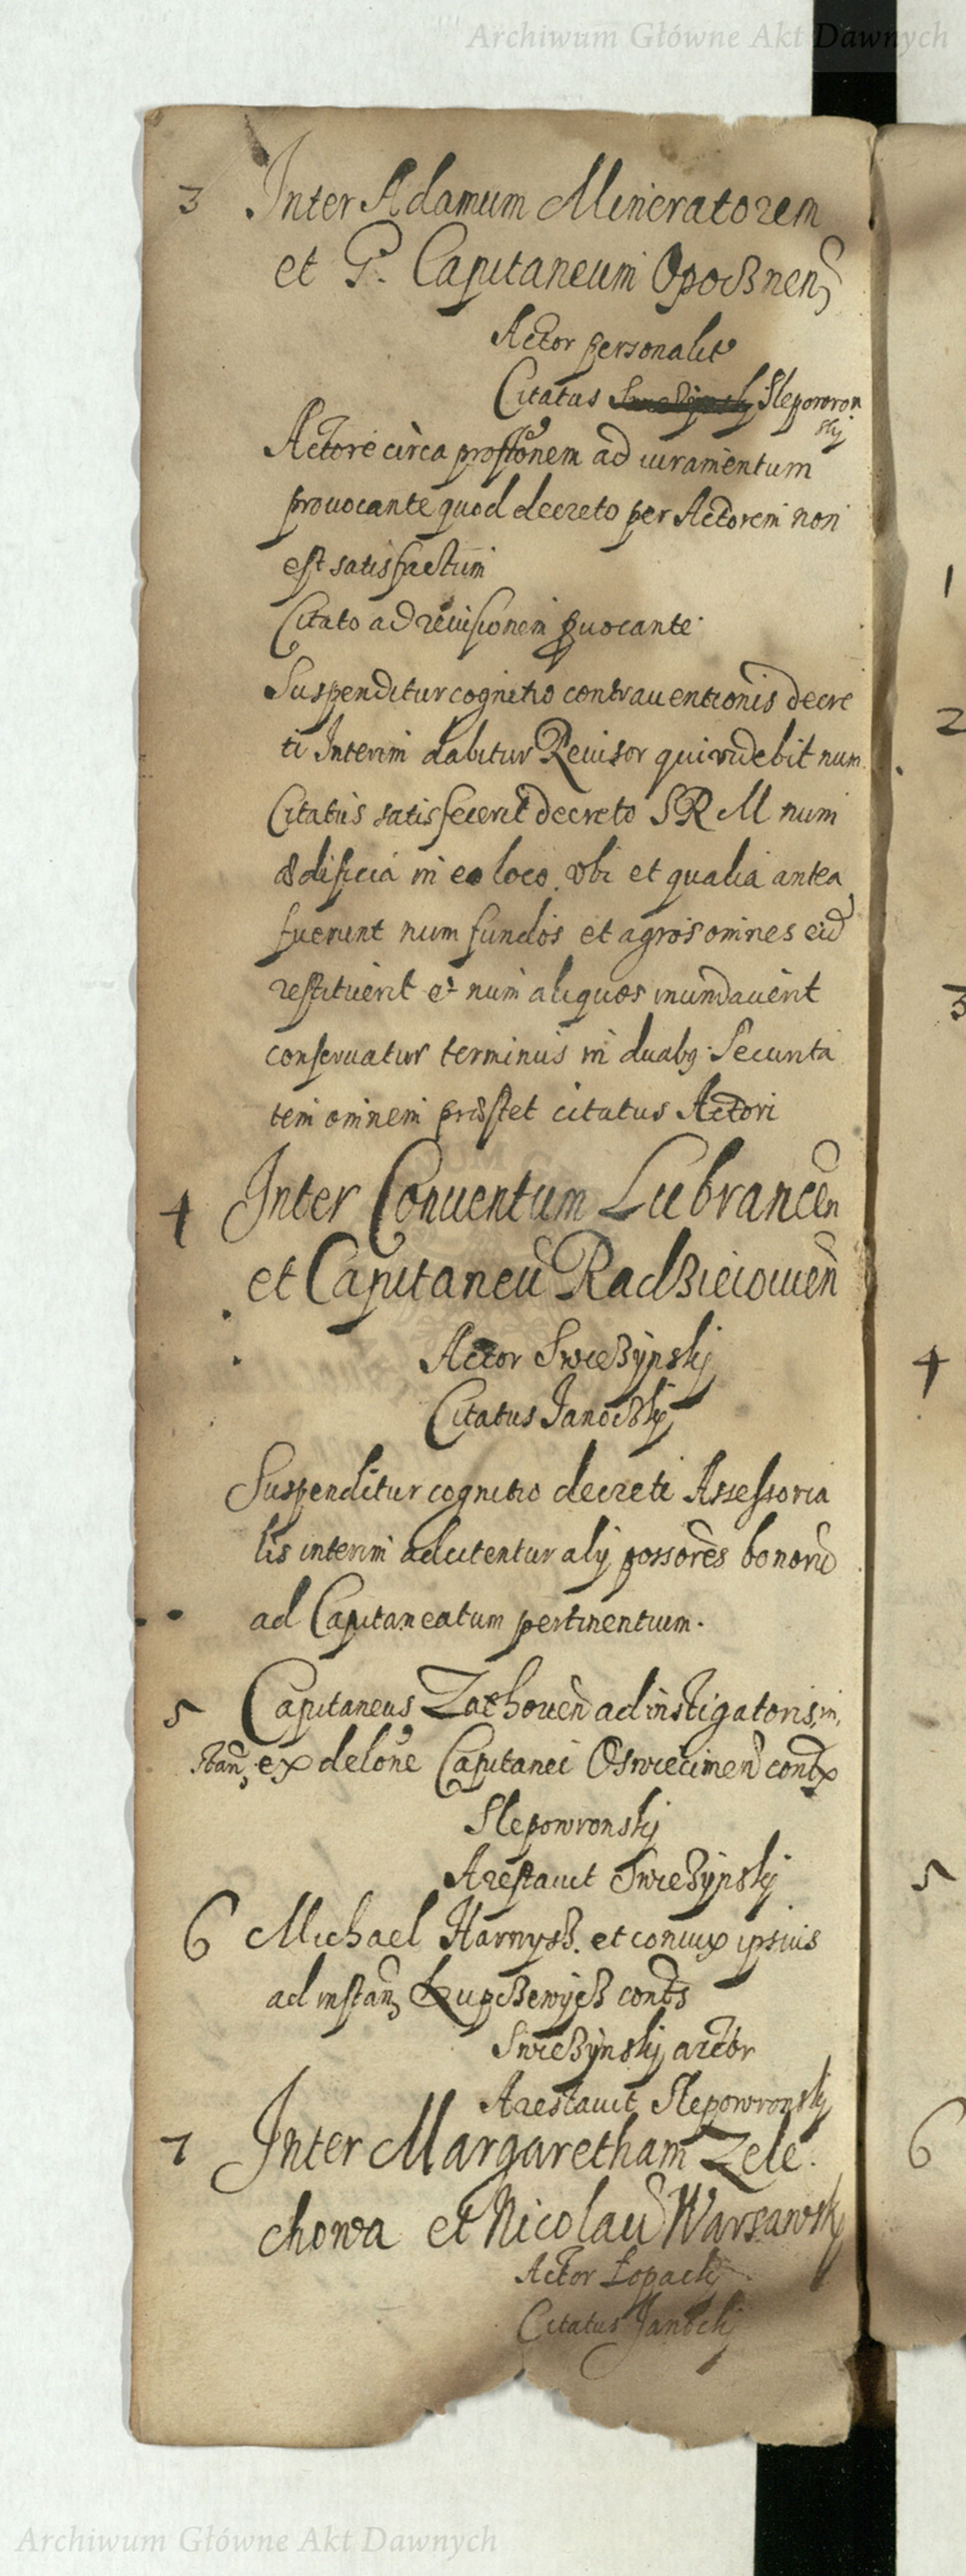 Archiwum Główne Akt Dawnych
3 Inter Adamum Mineratorem
et G. Capitaneum Opocznen
Actor personalit
Citatus Slepowron
skj
Actore circa prostonem ad iuramentum
prouocante quod decreto per Actorem non
est satisfactum
Citato ad reuisionem puocante
Suspenditur cognitio contrauentionis decre
ti Interim dabitur Reuisor qui videbit num
Citatus satisfecerit decreto SRM num
ædificia in eo loco vbi et qualia antea
fuerunt num fundos et agros omnes eid
restituerit et num aliquos inundauerit
conseruatur terminus in duabq Securita
tem omnem præstet citatus Actori
4 Inter Conuentum Lubrancen
et Capitaneu Radzieiouien
Actor Swieżynskj
Citatus Janoczkj
Suspenditur cognitio decreti Assessoria
lis interim adcitentur alij possores bonoru
ad Capitaneatum pertinentium.
5 Capitaneus Zathouen ad instigatoris, in,
stan, ex delone Capitanei Oswiecimen contx
Slepowronskj
Arestauit Swieżynskj
6 Michael Harnysz. et coniux ipsius
ad instan Kupczewycz conts
Swieżynskj actor
Arestauit Slepowronskj
7 Inter Margaretham Zele
chowa et Nicolau Warsawskj
Actor Łopackj
Citatus Janockj
1
2
3
4
5
6
Archiwum Główne Akt Dawnych